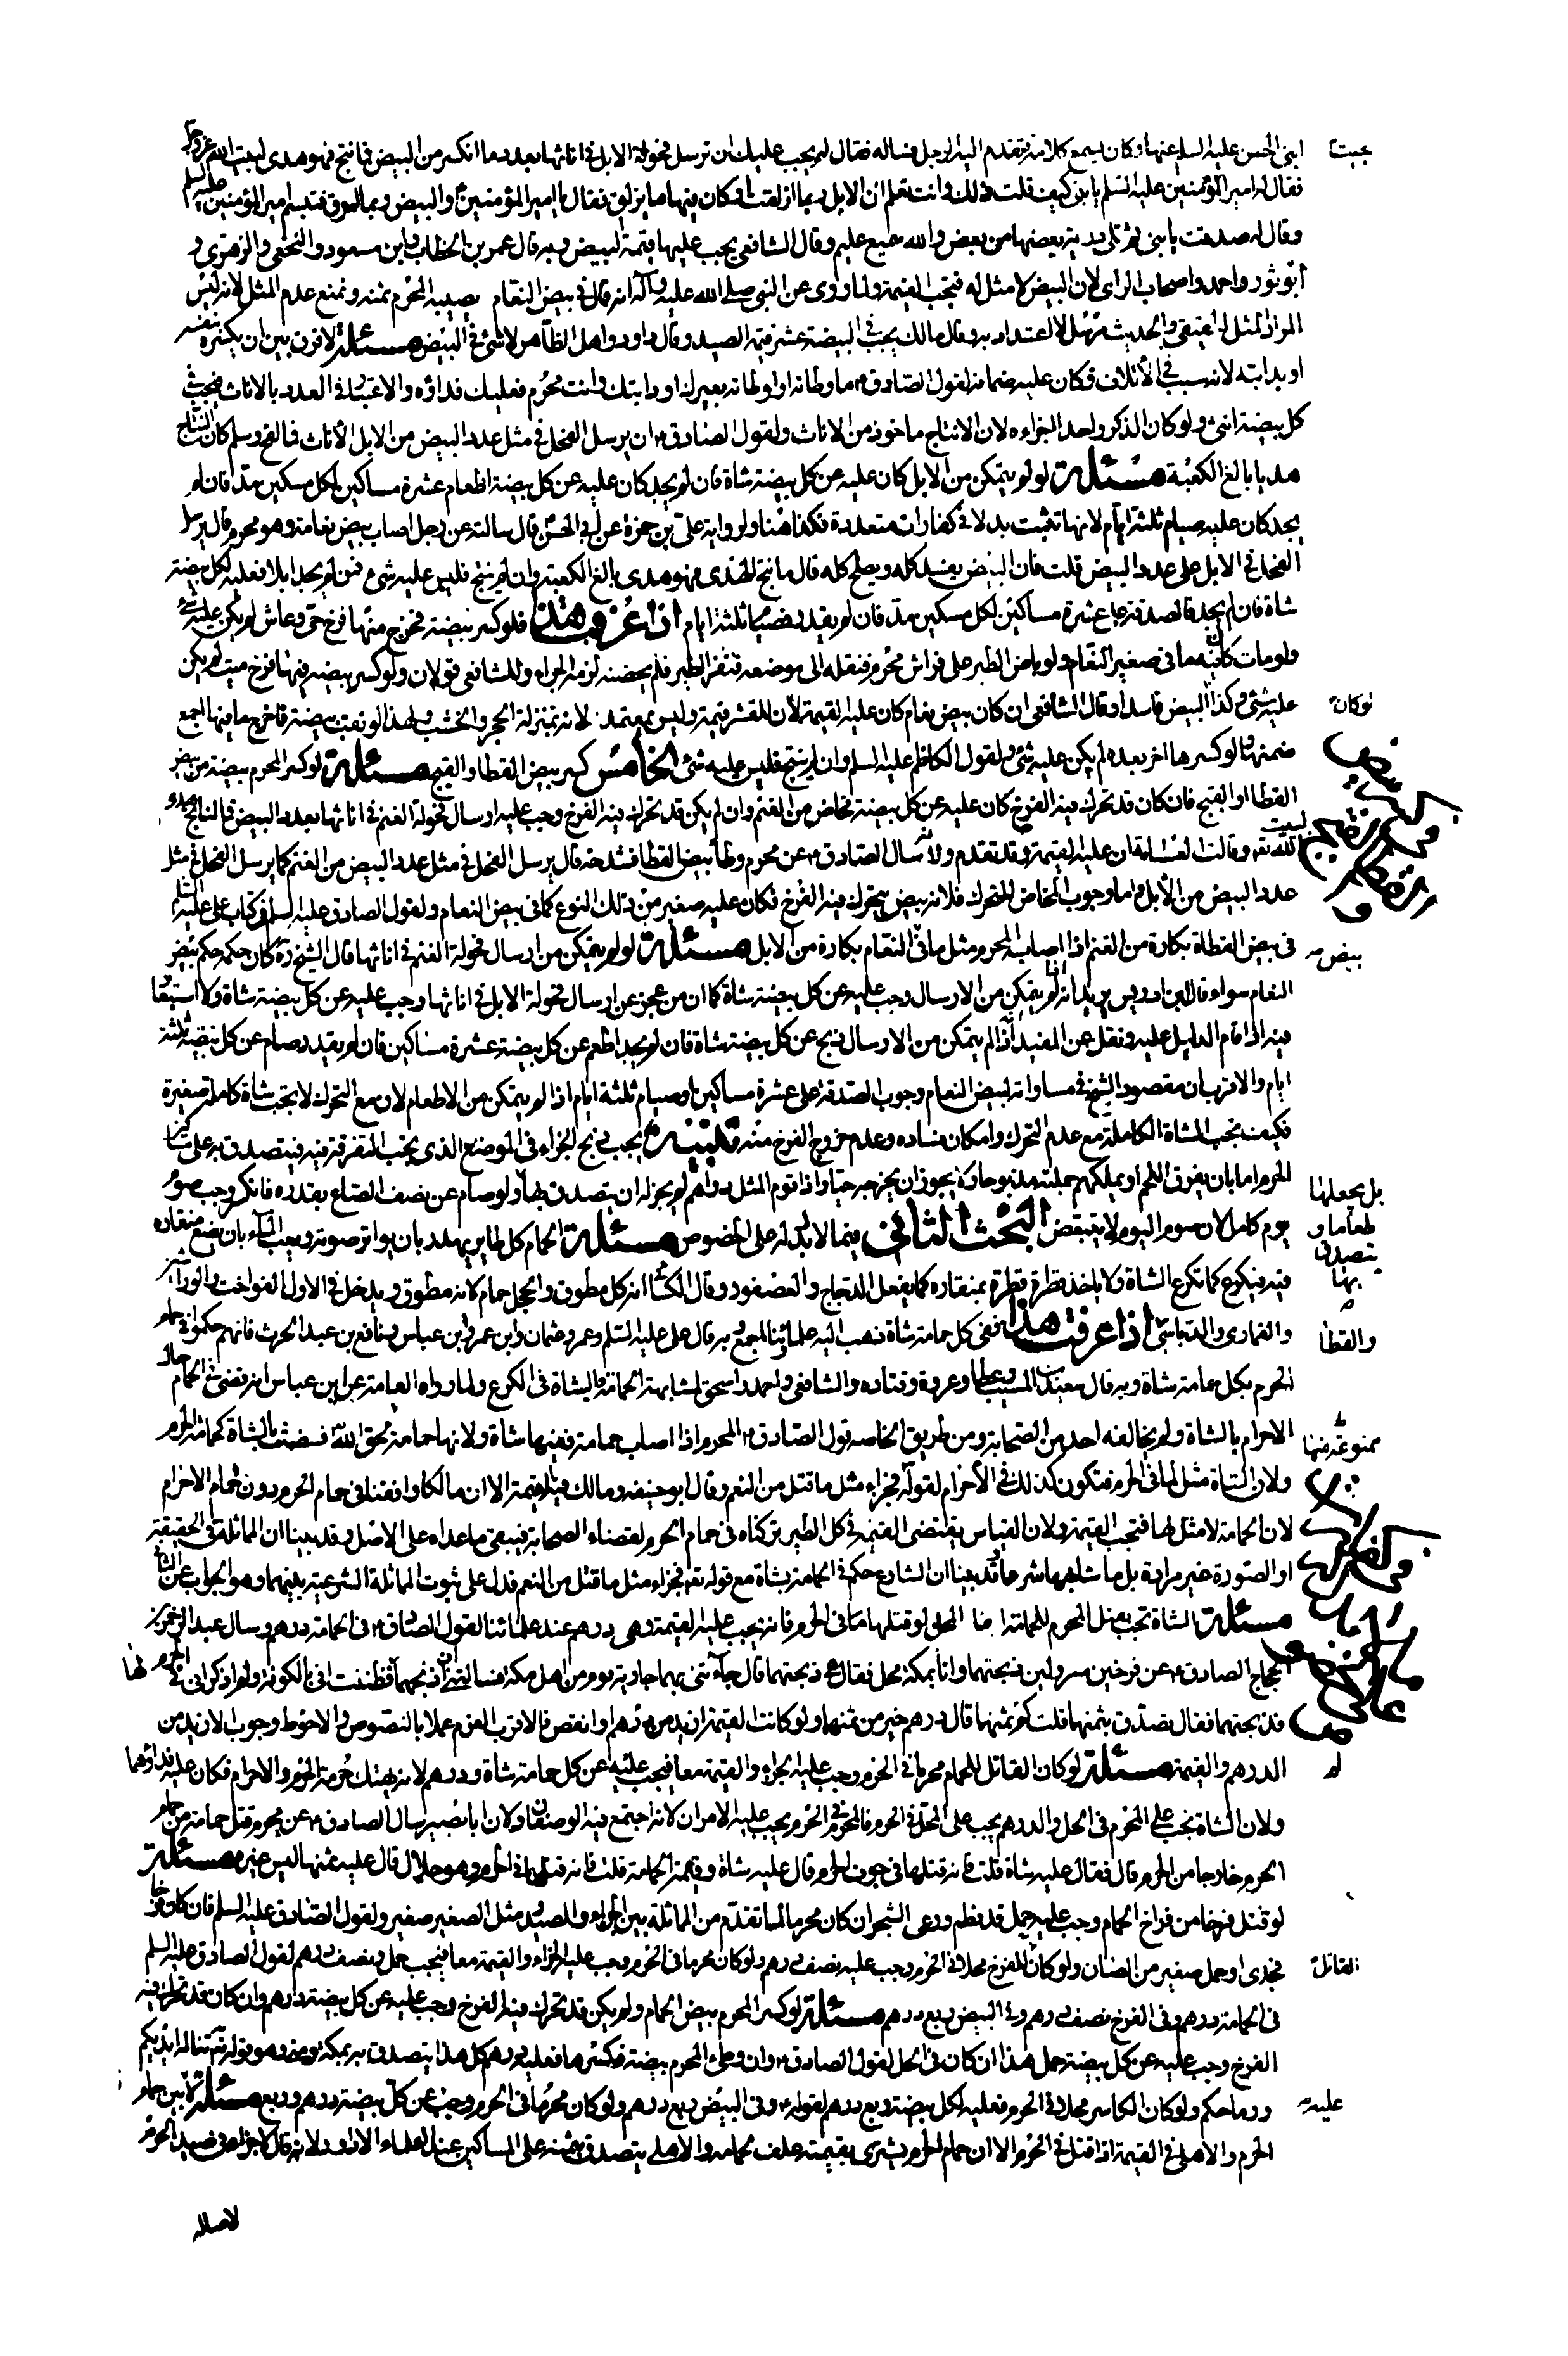 ابنى الحسن عليه السلم عنها وكان يسمع كلامه فتقدم اليه الرجل فساله فقال له يجب عليك ان ترسل فحولة الابل فى اناثها بعدد ما انكسر من البيض فما نتج فهو هدى لبيت الله عز وجل
فقال له امير المؤمنين عليه السلم يا بنى كيف قلت ذلك وانت تعلم ان الابل ربما ازلقت او كان فيها ما يزلق فقال يا امير المؤمنين والبيض ربما امرق فتبسم امير المؤمنين عليه السلم
وقال له صدقت يا بنى ثم تلى ذرية بعضها من بعض والله سميع عليم وقال الشافعى يجب عليها قيمة البيض وبه قال عمر بن الخطاب وابن مسعود والنخعى والزهرى و
ابو ثور واحمد واصحاب الراى لان البيض لا مثل له فتجب القيمة ولما روى عن النبى صلى الله عليه وآله انه قال فى بيض النعام يصيبه المحرم ثمنه ونمنع عدم المثل لانه ليس
المراد المثل الحقيقى والحديث مرسل لا اعتداد به وقال مالك يجب فى البيضة عشر قيمة الصيد وقال داود واهل الظاهر لا شئ فى البيض مسئلة لا فرق بين ان يكسره بنفسه
او بدابته لانه سبب فى الاتلاف فكان عليه ضمانه لقول الصادق ع ما وطأته او وطأته بعيرك او دابتك وانت محرم فعليك فداؤه والاعتبار فى العدد بالاناث فيجب
كل بيضة انثى ولو كان الذكر واحدا اجزاه لان الانتاج ماخوذ من الاناث ولقول الصادق ع ان يرسل الفحل فى مثل عدد البيض من الابل الاناث فما لقح وسلم كان النتاج
هديا بالغ الكعبة مسئلة لو لم يتمكن من الابل كان عليه عن كل بيضة شاة فان لم يجد كان عليه عن كل بيضة اطعام عشرة مساكين لكل مسكين مد فان لم
يجد كان عليه صيام ثلثة ايام لانها تثبت بدلا فى كفارات متعددة فكذا هنا ولرواية على بن حمزة عن ابى الحسن قال سالته عن رجل اصاب بيض نعامة وهو محرم قال يرسل
الفحل فى الابل على عدد البيض قلت فان البيض يفسد كله ويصلح كله قال ما نتج الهدى فهو هدى بالغ الكعبة وان لم ينتج فليس عليه شئ فمن لم يجد ابلا فعليه لكل بيضة
شاة فان لم يجد فالصدقة على عشرة مساكين لكل مسكين مد فان لم يقدر فصيام ثلثة ايام اذا عرفت هذا فلو كسر بيضة فخرج منها فرخ حى وعاش لم يكن عليه شئ
ولو مات كان فيه ما فى صغير النعام ولو باض الطير على فراش محرم فنقله الى موضعه فنفر الطير فلم يحضنه لزمه الجزاء وللشافعى قولان ولو كسر بيضة فيها فرخ ميت لم يكن
عليه شئ وكذا البيض فاسدا وقال الشافعى ان كان بيض نعام كان عليه القيمة لان للقشر قيمة وليس بمعتمد لانه بمنزلة الحجر والخشب ولهذا لو نقب بيضة فاخرج ما فيها اجمع
ضمنها ولو كسرها اخر بعده لم يكن عليه شئ ولقول الكاظم عليه السلم وان لم ينتج فليس عليه شئ الخامس كسر بيض القطا والقبج مسئلة لو كسر المحرم بيضة من بيض
القطا او القبج فان كان قد تحرك فيه الفرخ كان عليه عن كل بيضة مخاض من الغنم وان لم يكن قد تحرك فيه الفرخ وجب عليه ارسال فحولة الغنم فى اناثها بعدد البيض فالناتج هدى
لبيت الله تعـ وقالت العامة ان عليه القيمة وقد تقدم ولانه سال الصادق ع عن محرم وطأ بيض القطا فشدخه قال يرسل الفحل فى مثل عدد البيض من الغنم كما يرسل الفحل فى مثل
عدد البيض من الابل واما وجوب المخاض للمتحرك فلانه بيض يتحرك فيه الفرخ فكان عليه صغير من ذلك النوع كما فى بيض النعام ولقول الصادق عليه السلم فى كتاب على عليه السلم
فى بيض القطاة بكارة من الغنم اذا اصابه المحرم مثل ما فى النعام بكارة من الابل مسئلة لو لم يتمكن من ارسال فحولة الغنم فى اناثها قال الشيخ ره كان حكمه حكم بيض
النعام سواء قال ابن ادريس يريد انه اذا لم يتمكن من الارسال وجب عليه عن كل بيضة شاة كما ان من عجز عن ارسال فحولة الابل فى اناثها وجب عليه عن كل بيضة شاة ولا استبعاد
فيه اذا قام الدليل عليه ونقل عن المفيد انه اذا لم يتمكن من الارسال ذبح عن كل بيضة شاة فان لم يجد اطعم عن كل بيضة عشرة مساكين فان لم يقدر صام عن كل بيضة ثلثة
ايام والاقرب ان مقصود الشيخ فى مساواته لبيض النعام وجوب الصدقة على عشرة مساكين او صيام ثلثة ايام اذا لم يتمكن من الاطعام لان مع التحرك لا يجب شاة كاملة صغيرة
فكيف تجب الشاة الكاملة مع عدم التحرك وامكان فساده وعدم خروج الفرخ منه تنبيه يجب ذبح الجزاء فى الموضع الذى يجب التفرقة فيه فيتصدق به على مساكين
الحرم اما بان يفرق اللحم او يملكهم جملته مذبوحا ولا يجوز ان يخرجه حيا واذا قوم المثل دراهم لم يجز له ان يتصدق بها ولو صام عن نصف الصاع بقدره فانكر وجب صوم
يوم كامل لان صوم اليوم لا يتبعض البحث الثانى فيما لا بدل له على الخصوص مسئلة الحمام كل طاير يهدر بان يواتر صوته ويعب الماء بان يضع منقاره
فيه فيكرع كما تكرع الشاة ولا ياخذ قطرة قطرة بمنقاره كما يفعل الدجاج والعصفور وقال الكسائى انه كل مطوق والحجل حمام لانه مطوق ويدخل فى الاول الفواخت والوراشين
والقمارى والدباسى اذا عرفت هذا ففى كل حمامة شاة ذهب اليه علمائنا اجمع وبه قال على عليه السلم وعمر وعثمان وابن عمر وابن عباس ونافع بن عبد الحرث فانهم حكموا فى حمام
الحرم بكل حمامة شاة وبه قال سعيد بن المسيب وعطا وعروة وقتاده والشافعى واحمد واسحق لمشابهة الحمامة بالشاة فى الكرع ولما رواه العامة عن ابن عباس انه قضى فى الحمام حال
الاحرام بالشاة ولم يخالفه احد من الصحابة ومن طريق الخاصه قول الصادق ع المحرم اذا اصاب حمامة ففيها شاة ولانها حمامة بحق الله فضمنت بالشاة كحمامة الحرم
ولان الشاة مثل لها فى الحرم فتكون كذلك فى الاحرام لقوله فجزاء مثل ما قتل من النعم وقال ابو حنيفه ومالك فيه القيمة الا ان مالكا وافقنا فى حمام الحرم دون حمام الاحرام
لان الحمامة لا مثل لها فتجب القيمة ولان القياس يقتضى القيمة فى كل الطير تركناه فى حمام الحرم لقضاء الصحابة فيبقى ما عداه على الاصل وقد بينا ان المماثلة فى الحقيقة
او الصورة غير مرادة بل ما شابهها شرعا وقد بينا ان الشارع حكم فى الحمامة بشاة مع قوله تعـ فجزاء مثل ما قتل من النعم فدل على ثبوت المماثلة الشرعية بينهما وهو الجواب عن الثانى
مسئلة الشاة تجب بقتل المحرم للحمامة اما المحل لو قتلها فى الحرم فانه يجب عليه القيمة وهى درهم عند علمائنا لقول الصادق ع فى الحمامة درهم وسال عبد الرحمن بن
الحجاج الصادق ع عن فرخين مسرولين ذبحتهما وانا بمكة محل فقال لم ذبحتهما قال جاءتنى بهما جارية قوم من اهل مكة فسالتنى ان اذبحهما فظننت انى بالكوفة ولم اذكر انى فى الحرم
فذبحتهما فقال تصدق بثمنها قلت كم ثمنها قال درهم خير من ثمنها ولو كانت القيمة ازيد من درهم او انقص فالاقرب الغرم عملا بالنصوص والاحوط وجوب الازيد من
الدرهم والقيمة مسئلة لو كان القاتل للحمام محرما فى الحرم وجب عليه الجزاء والقيمة معا فيجب عليه عن كل حمامة شاة ودرهم لانه يهتك حرمة الحرم والاحرام فكان عليه فداؤهما
ولان الشاة تجب على المحرم فى الحل والدرهم يجب على المحل فى الحرم فالمحرم فى الحرم يجب عليه الامران لانه اجتمع فيه الوصفان ولان ابا بصير سال الصادق ع عن محرم قتل حمامة من حمام
الحرم خارجا من الحرم قال فقال عليه شاة قلت فانه قتلها فى جوف الحرم قال عليه شاة وقيمة الحمامة قلت فانه قتلها فى الحرم وهو حلال قال عليه ثمنها ليس غيره مسئلة
لو قتل فرخا من فراخ الحمام وجب عليه حمل قد فطم ورعى الشجر ان كان محرما لما تقدم من المماثلة بين الجزاء والصيد ومثل الصغير صغير ولقول الصادق عليه السلم فان كان فرخا
فجدى او حمل صغير من الضان ولو كان للفرخ محلا فى الحرم وجب عليه نصف درهم ولو كان محرما فى الحرم وجب عليه الجزاء والقيمة معا فيجب حمل ونصف درهم لقول الصادق عليه السلم
فى الحمامة درهم وفى الفرخ نصف درهم وفى البيض ربع درهم مسئلة لو كسر المحرم بيض الحمام ولم يكن قد تحرك فيه الفرخ وجب عليه عن كل بيضة درهم وان كان قد تحرك فيه
الفرخ وجب عليه عن كل بيضة حمل هذا ان كان فى الحل لقول الصادق ع وان وطئ المحرم بيضة فكسرها فعليه درهم كل هذا يتصدق به بمكة ومنى وهو قوله تعـ تناله ايديكم
ورماحكم ولو كان الكاسر محلا فى الحرم فعليه لكل بيضة ربع درهم لقوله ع وفى البيض ربع درهم ولو كان محرما فى الحرم وجب عن كل بيضة درهم وربع مسئلة لا بين حمام
الحرم والاهلى فى القيمة اذا قتل فى الحرم الا ان حمام الحرم يشترى بقيمته علف لحمامه والاهلى يتصدق بثمنه على المساكين عند علماء الا داود لانه قال لا جزاء فى صيد الحرم
يجب
لو كان
بيض
بل يجعلها
طعاما و
يتصدق
بها
والقطا
ممنوعة منها
لها
له
القاتل
عليه
لاصاله